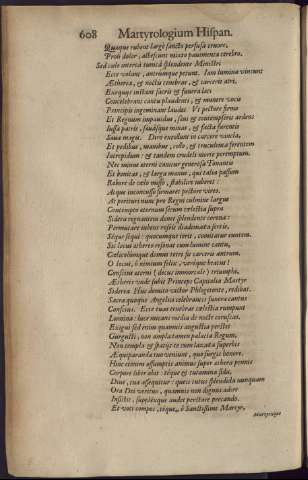 608 Martyrologium Hispan.
Quaque rubent largè sancto perfusa cruore,
Proh dolor, albescunt mixto pavimenta cerebro.
Sed cælo interea tunicâ splendente Ministri
Ecce volant, antrumque petunt. Iam lumina vincunt
Æthereæ, & noctis tenebras & carceris atri.
Exequijs instant sacris & funera læti
Concelebrant cantu plaudente, & munere vocis
Principis ingeminant laudes. Vt pectore firmo
Et Regnum impavidus, sons & contempserit ardens
Iussa patris, sævasque minas, & facta ferocis
Euua magni. Dein extollunt in carcere vincla,
Et pedibus, manibus, collo, & truculenta ferentem
Intrepidum, & tandem crudeli morte peremptum.
Nec minus æterni canitur generosa Tonantis
Et bonitas, & larga manus, qui talia passum
Robore de cœlo misso, stabilire iuberet:
Atque inconcusso firmaret pectore vires.
At perituri nunc pro Regni culmine largus
Contemptor æternum secum cœlestia supra
Sidera regnantem donet splendente corona:
Permutare iubens roseis diademata sertis,
Séque sequi quocumque ierit, comitante
Sic locus æthereo resonat cum lumine cantu,
Cœlicolûmque domus tetro sit carceris antrum.
O locus, ô nimium felix, veréque beatus!
Conscius æterni (decus immortale) triumphi,
Æthereis unde subit Princeps Capitolia Martyr
Sidereis. Huc demito vector Phlegonte, redibat,
Sacra quousque Angelica celebrancis funera cantus
Conscius. Ecce tuas tenebras cœlestia rumpunt
Lumina: luxe micans media de nocte coruscas.
Exigui sed enim quamvis angustia perstes
Gurgusti, non ampla tamen palatia Regum,
Non templa & patrijs te cum laxata superbis
Æquiparanda tuo veniunt, quo surgis honore.
Hinc etenim assumptis animus super æthera pennis
Corpore liber abit: téque & tutamina sedis,
Diue, tua assequitur: queis cutus splendida nunquam
Ora Dei veritus, quamvis non dignus adire
Insistis, supeiesque audet perstare precando.
Et voti compos, téque, ô Sanctissime Martyr,
Martyrisque